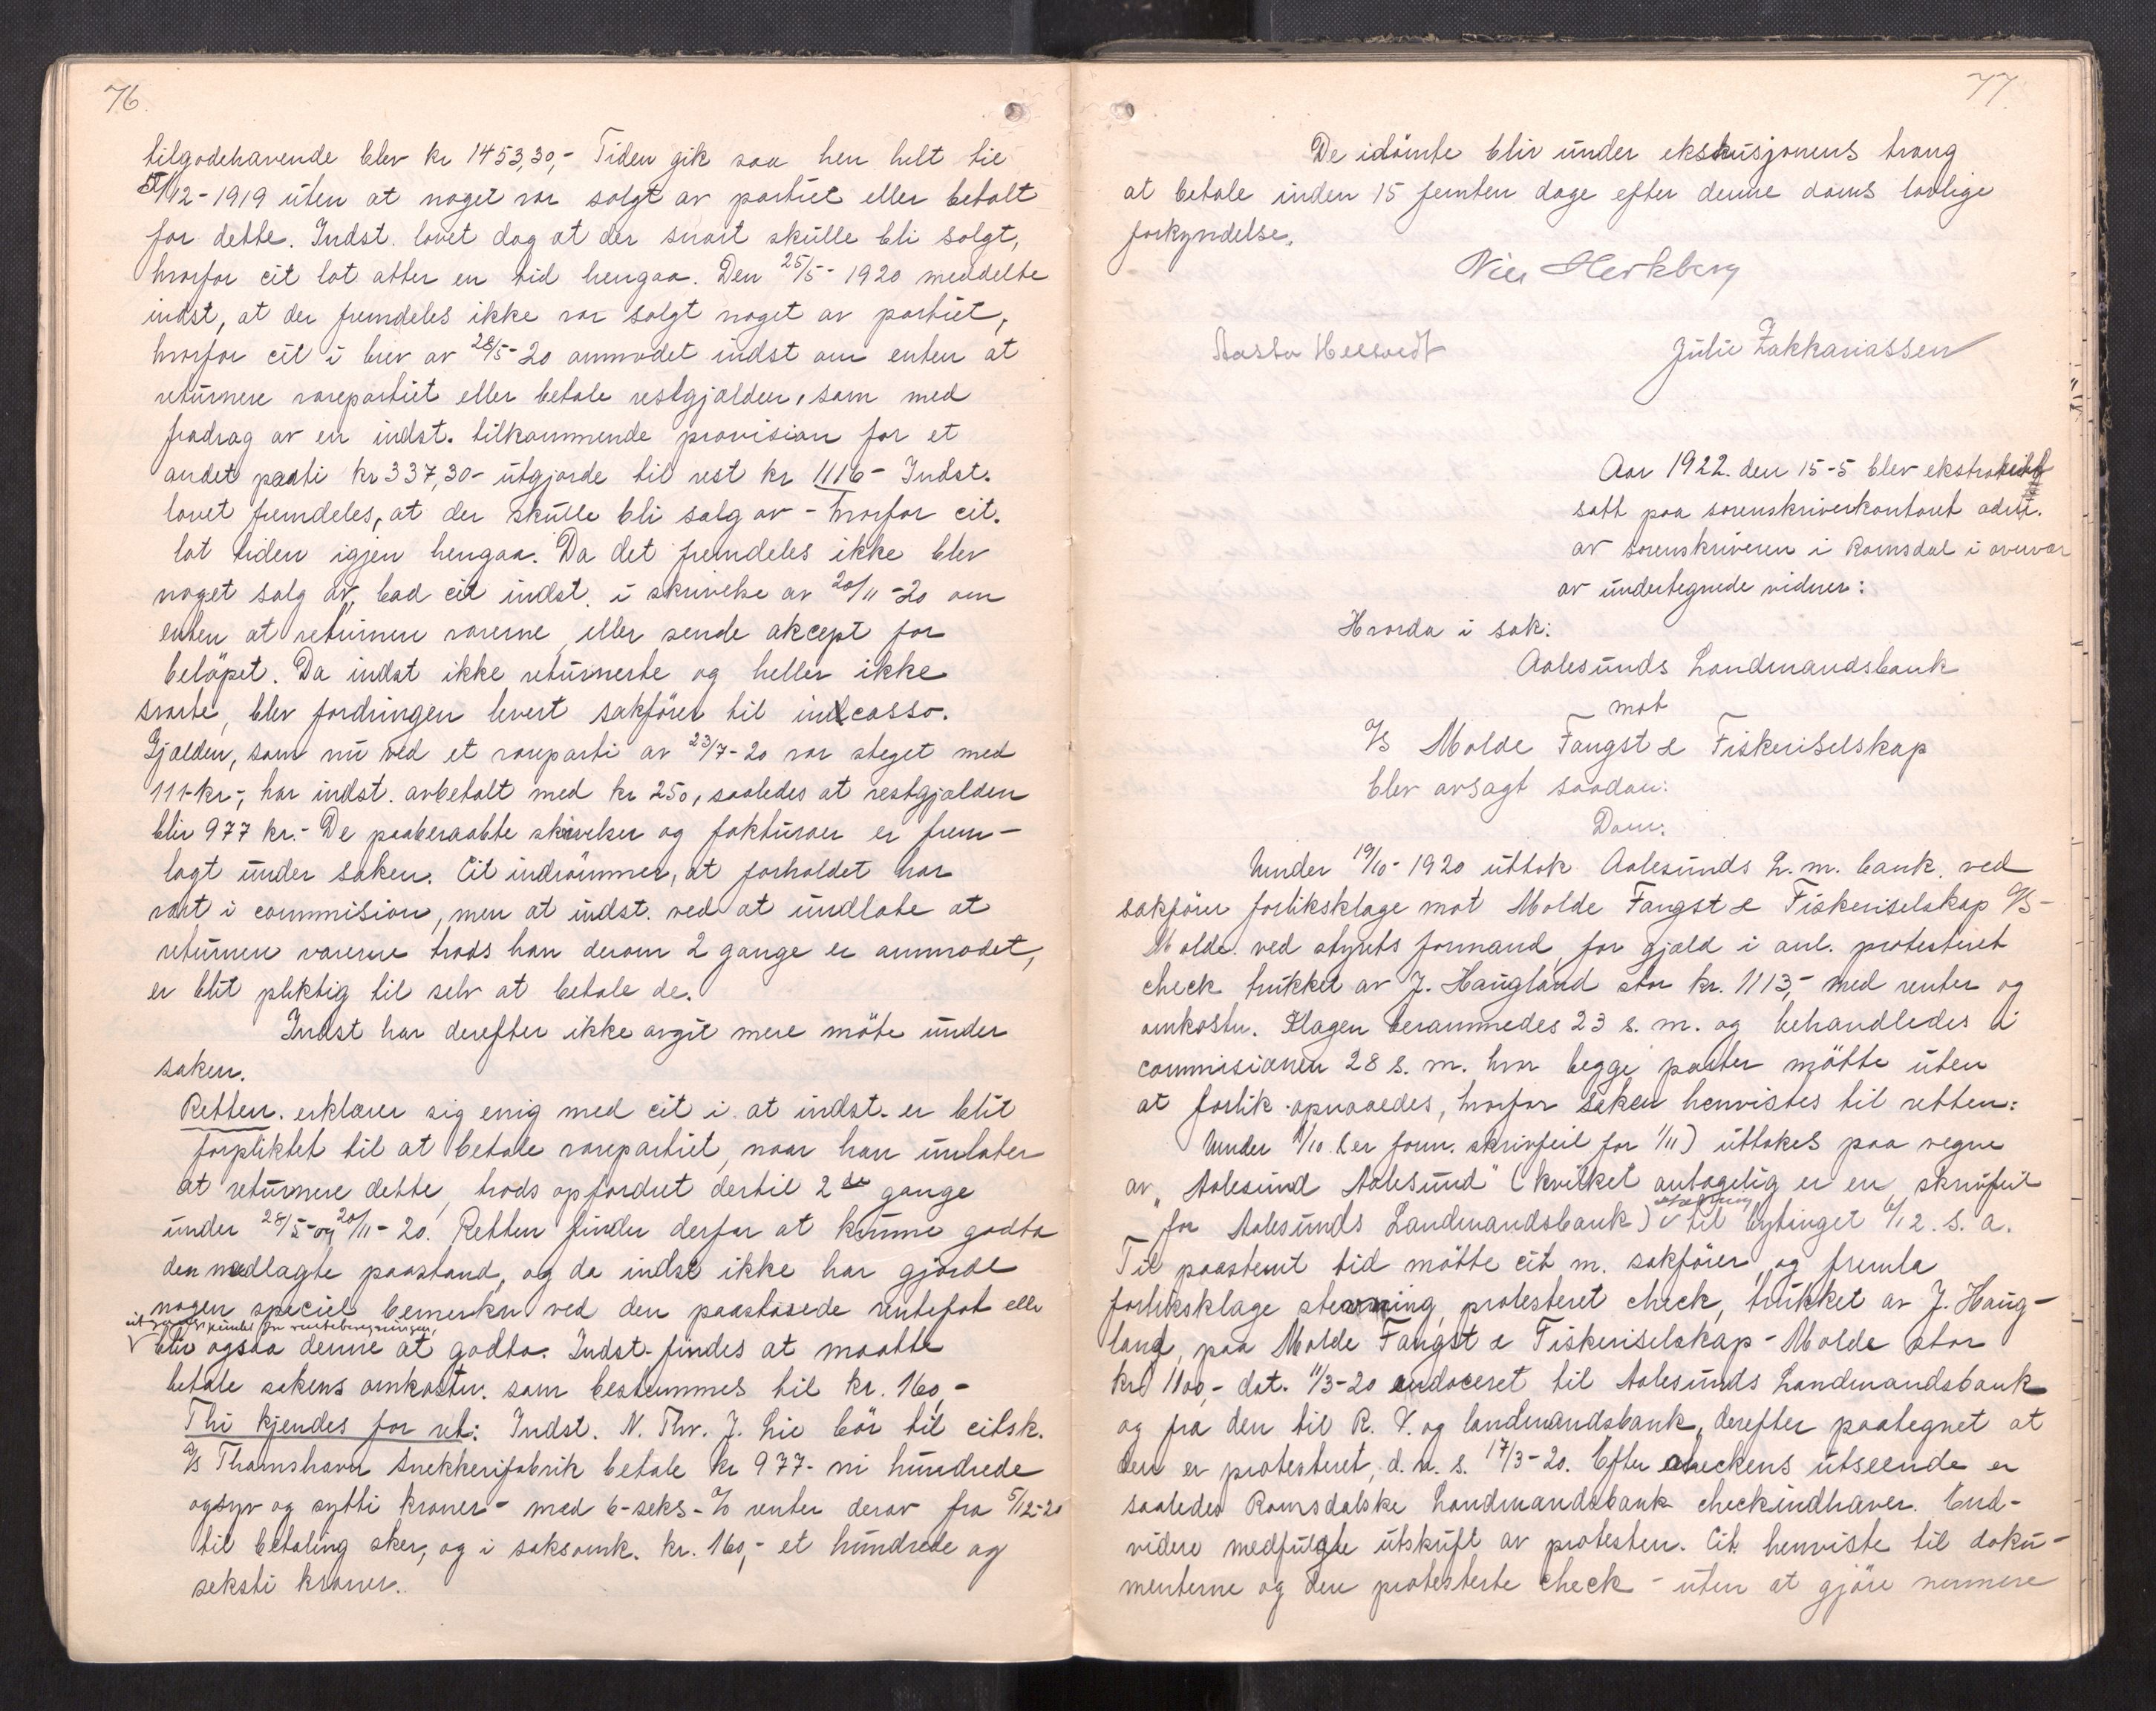 76.
tilgodehavende blev kr 1453,30,- Tiden gik saa hen helt til
5/12-1919 uten at noget var solgt av partiet eller betalt
for dette. Indst. lovet dog at der snart skulle bli solgt,
hvorfor cit lot atter en tid hengaa. Den 25/5-1920 meddelte
indst, at der fremdeles ikke var solgt noget av partiet,
hvorfor cit i brev av 28/5-20 anmodet indst om enten at
returnere varepartiet eller betale restgjælden, som med
fradrag av en indst. tilkommende provision for et
andet parti kr 337,30- utgjorde til rest kr 1116- Indst.
lovet fremdeles, at der skulle bli salg av - hvorfor cit.
lot tiden igjen hengaa. Da det fremdeles ikke blev
noget salg av, bad cit indst. i skrivelse av 20/11-20 om
enten at returnere varerne, eller sende akcept for
beløpet. Da indst ikke returnerte og heller ikke
svarte, blev fordringen levert sakfører til incasso.
Gjælden, som nu ved et vareparti av 23/7-20 var steget med
111-kr-, har indst. avbetalt med kr 250, saaledes at restgjælden
blir 977 kr.- De paaberaabte skrivelser og fakturaer er frem-
lagt under saken. Cit indrømmer, at forholdet har
vært i commision, men at indst. ved at undlate at
returnere varerne trods han derom 2 gange er anmodet,
er blit pliktig til selv at betale de.
Indst har derefter ikke avgit mere møte under
saken.
Retten. erklærer sig enig med cit i at indst. er blit
forpliktet til at betale varepartiet, naar han unlater
at returnere dette, trods opfordret dertil 2 de gange
under 28/5- og 20/11-20. Retten finder derfor at kunne godta
den nedlagte paastand, og da indst ikke har gjorde
nogen speciel bemerkn ved den paastaaede rentefot eller
utgangspunktet for renteberegningen,
blir ogsaa denne at godta. Indst. findes at maatte
betale sakens omkostn. som bestemmes til kr. 160,-
Thi kjendes for ret: Indst. N. Thv. J. Lie bør til citsk.
A/S Thamshavn Snekkerifabrik betale kr 977- ni hundrede
ogsyv og sytti kroner- med 6-seks-% renter derav fra 5/12-20
til betaling sker, og i saksomk. kr. 160,- et hundrede og
seksti kroner.
77
De idømte blir under eksekusjonens tvang
at betale inden 15 femten dage efter denne doms lovlige
forkyndelse.
Julie Zakkariassen
Aar 1922. den 15-5 blev ekstrarett
satt paa sorenskriverkontoret adm.
av sorenskriveren i Romsdal i overvær
av undertegnede vidner:
Hvorda i sak:
Aalesunds Landmandsbank
mot
A/S Molde Fangst & Fiskeriselskap
blev avsagt saadan:
Dom:
Under 19/10-1920 uttok Aalesunds L. m. bank. ved
sakfører forliksklage mot Molde Fangst & Fiskeriselskap A/S-
Molde. ved styrets formand, for gjæld i anl. protesteret
check trukket av J. Haugland stor kr. 1113,- med renter og
omkostn. Klagen berammedes 23 s. m. og behandledes i
commisionen 28 s. m. hvor begge parter møtte uten
at forlik opnaaedes, hvorfor saken henvistes til retten:
Under 1/10 (er form. skrivfeil for 1/11) uttokes paa vegne
av "Aalesund Aalesund" (hvilket antagelig er en skrivfeil
stefning
for Aalesunds Landmandsbank) til bytinget 6/12. s. a.
Til paastemt tid møtte cit m. sakfører, og fremla
forliksklage stevning, protesteret check, trukket av J. Haug-
land, paa Molde Fangst & Fiskeriselskap - Molde stor
kr 1100,- dat. 11/3-20 endoceret til Aalesunds Landmandsbank
og fra den til R. F. og landmandsbank, derefter paategnet at
den er protesteret, d. u. s. 17/3-20. Efter checkens utseende er
saaledes Romsdalske Landmandsbank checkindhaver. End-
videre medfulgte utskrift av protesten. Cit. henviste til doku-
menterne og den protesterte check - uten at gjøre nermere